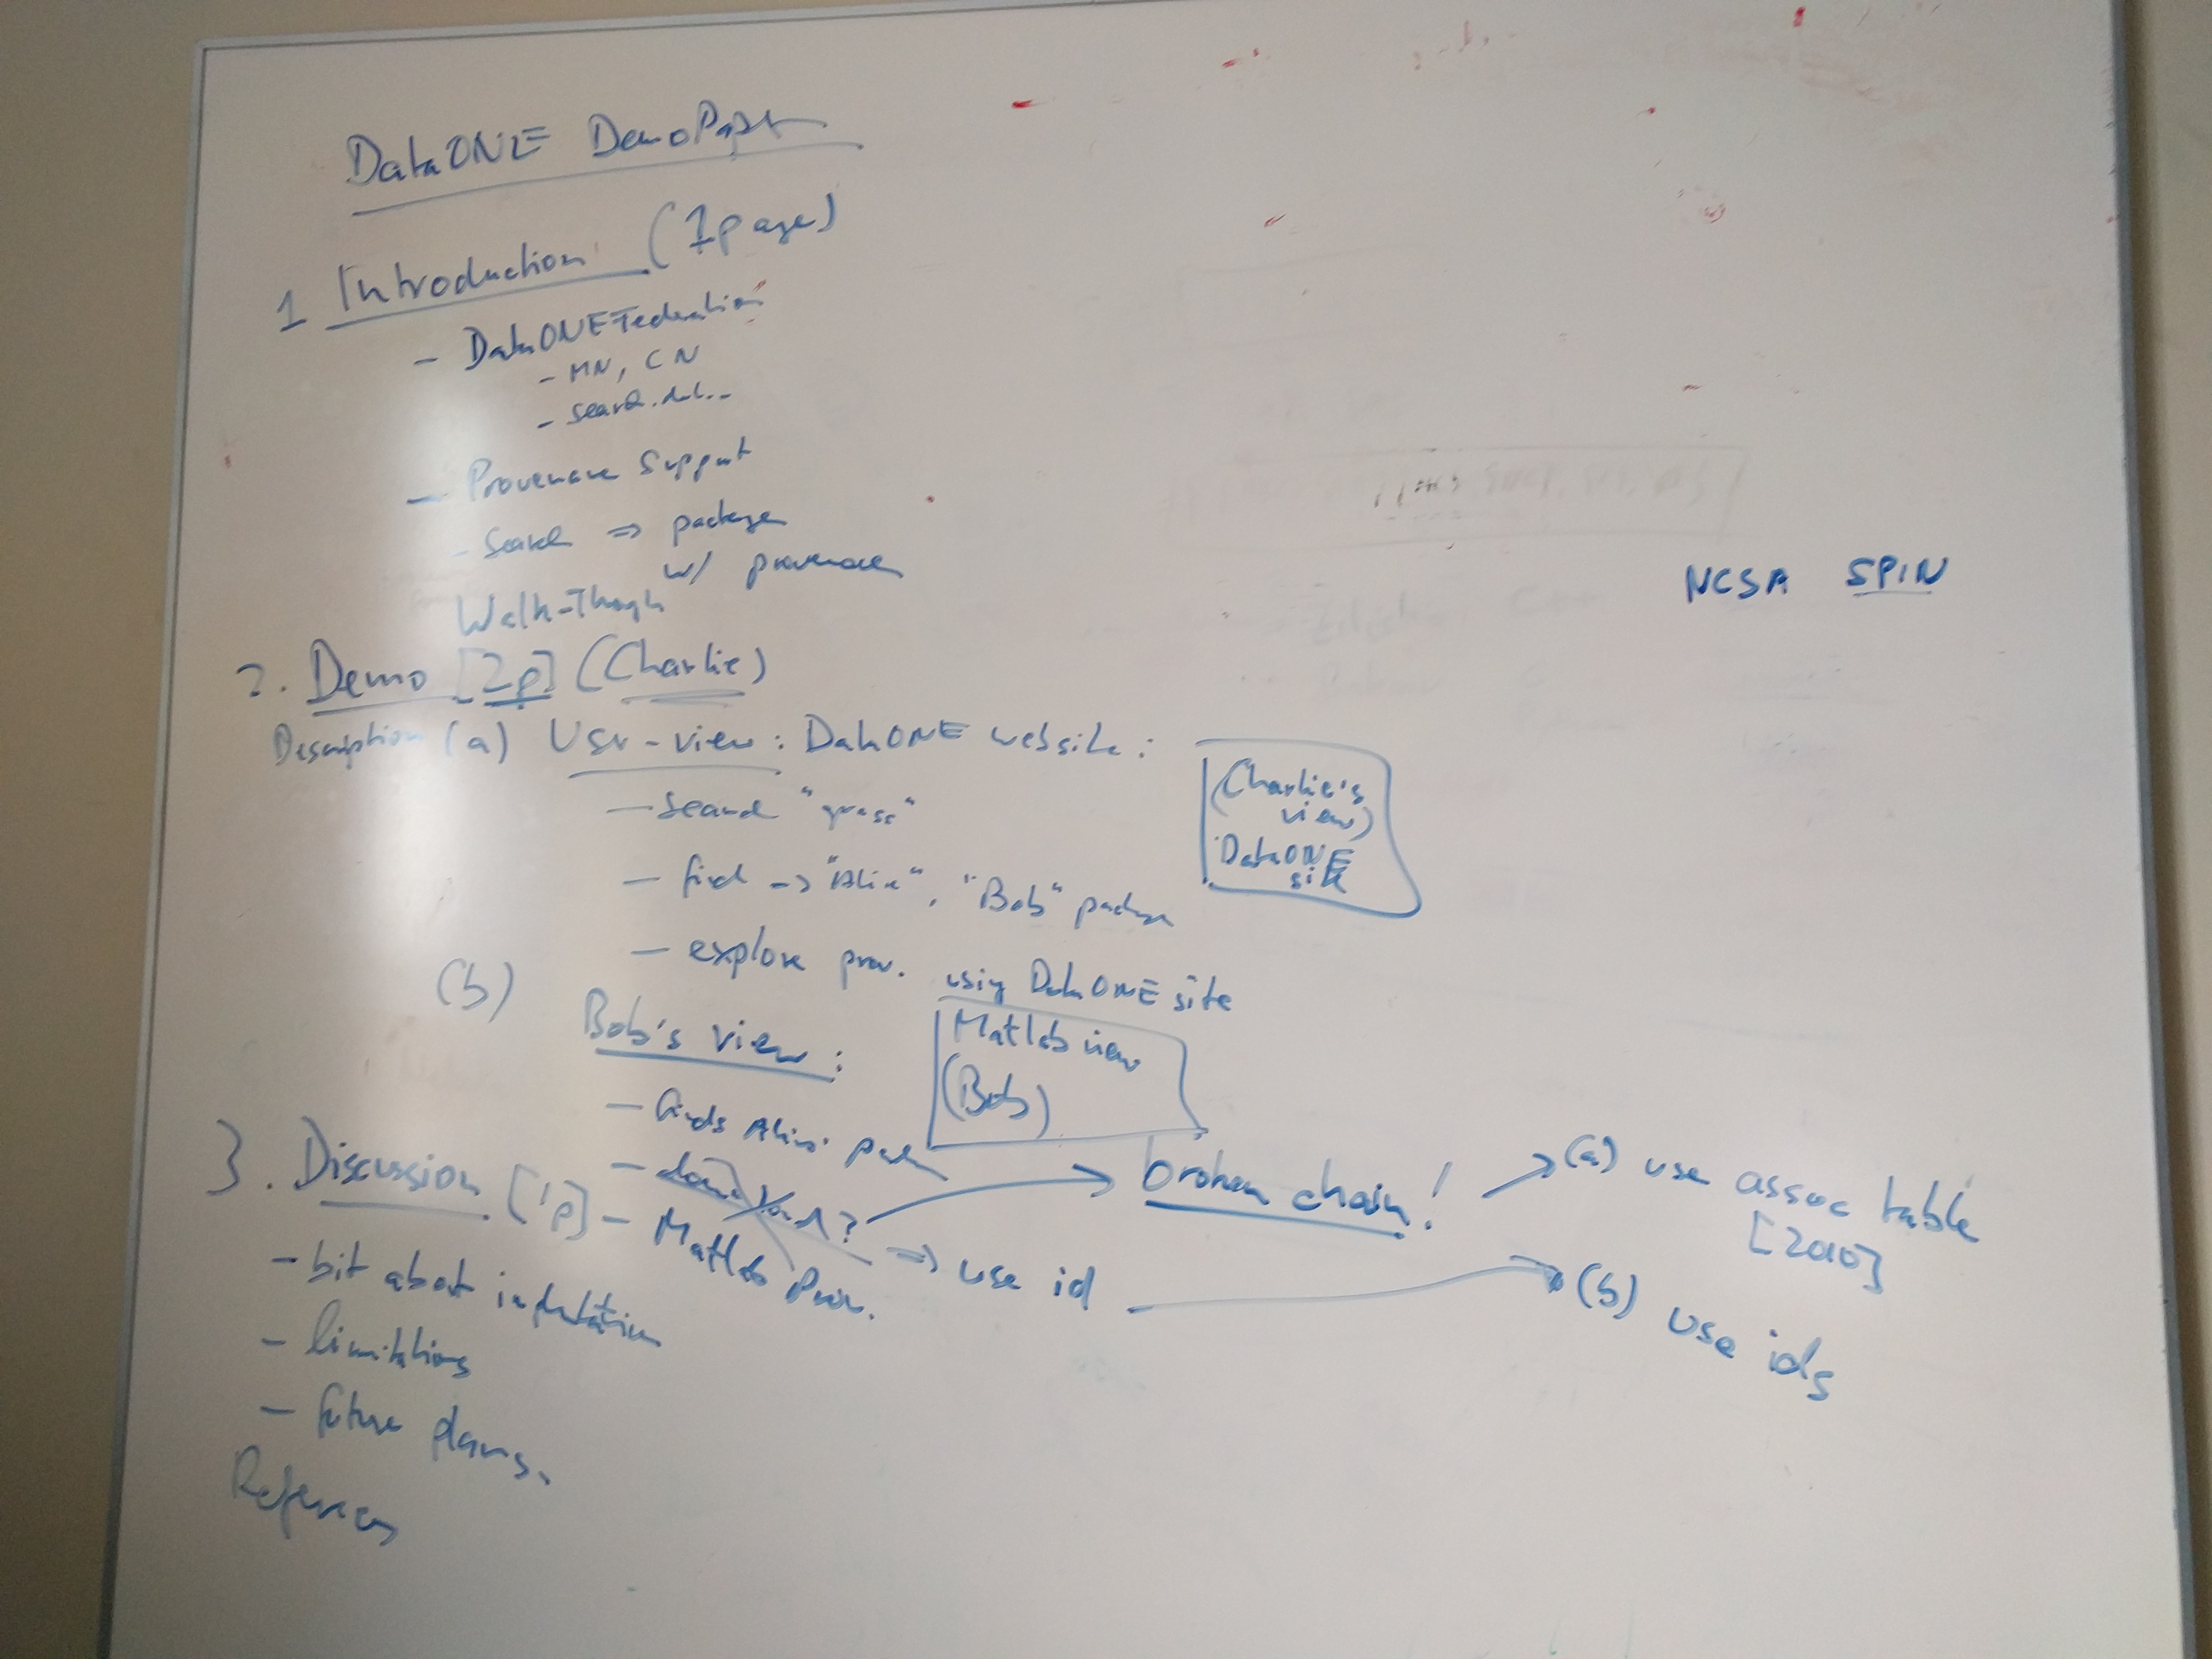 DataONE DemoPaper
1 Introduction (1page)
- DataONE Federation
- MN, CN
- search.dat..
- Provenance Support
- Search => package
w/ provenance
Walk-Through
2. Demo [2p] (Charlie)
Description (a) User-view: DataONE website:
- search "grass"
- find -> "Alice", "Bob" package
- explore prov. using DataONE site
(Charlie's
view)
DataONE
site
(b) Bob's view:
Matlab view
(Bob)
- finds Alice'
- Matlab Prov.
=> use id
broken chain!
(a) use assoc table
(b) use ids
3. Discussion [1p]
- bit about
- limitations
- future plans.
References
NCSA SPIN